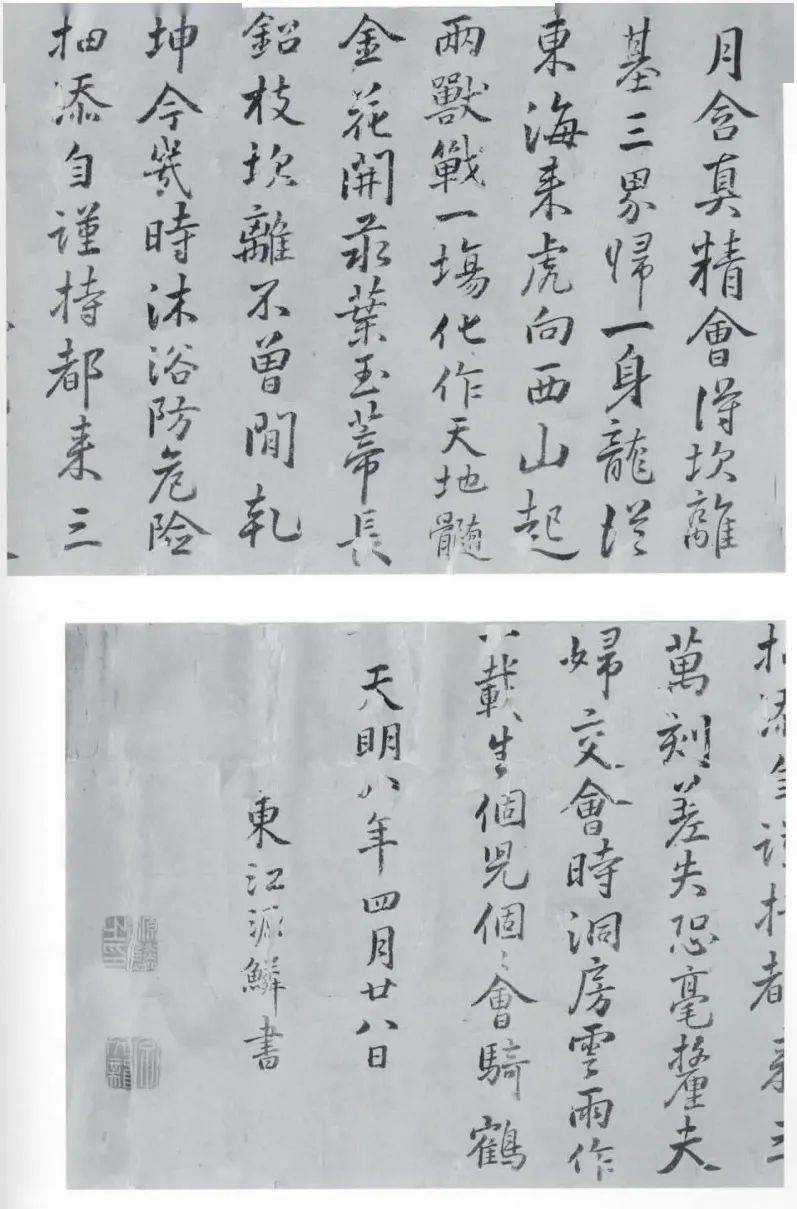 月含真精會得坎離
基三界歸一身龍従
東海来虎向西山起
兩獸戰一塲化作天地髓
金花開汞葉玉蒂長
鉛枝坎離不曽閒乾
坤今幾時沐浴防危險
抽添自謹持都来三
抽添自謹持都来三
萬刻差失恐毫釐夫
婦交會時洞房雲雨作
一載生個兒個〻會騎鶴
天明八年四月廿八日
東江源鱗書
源鱗之印